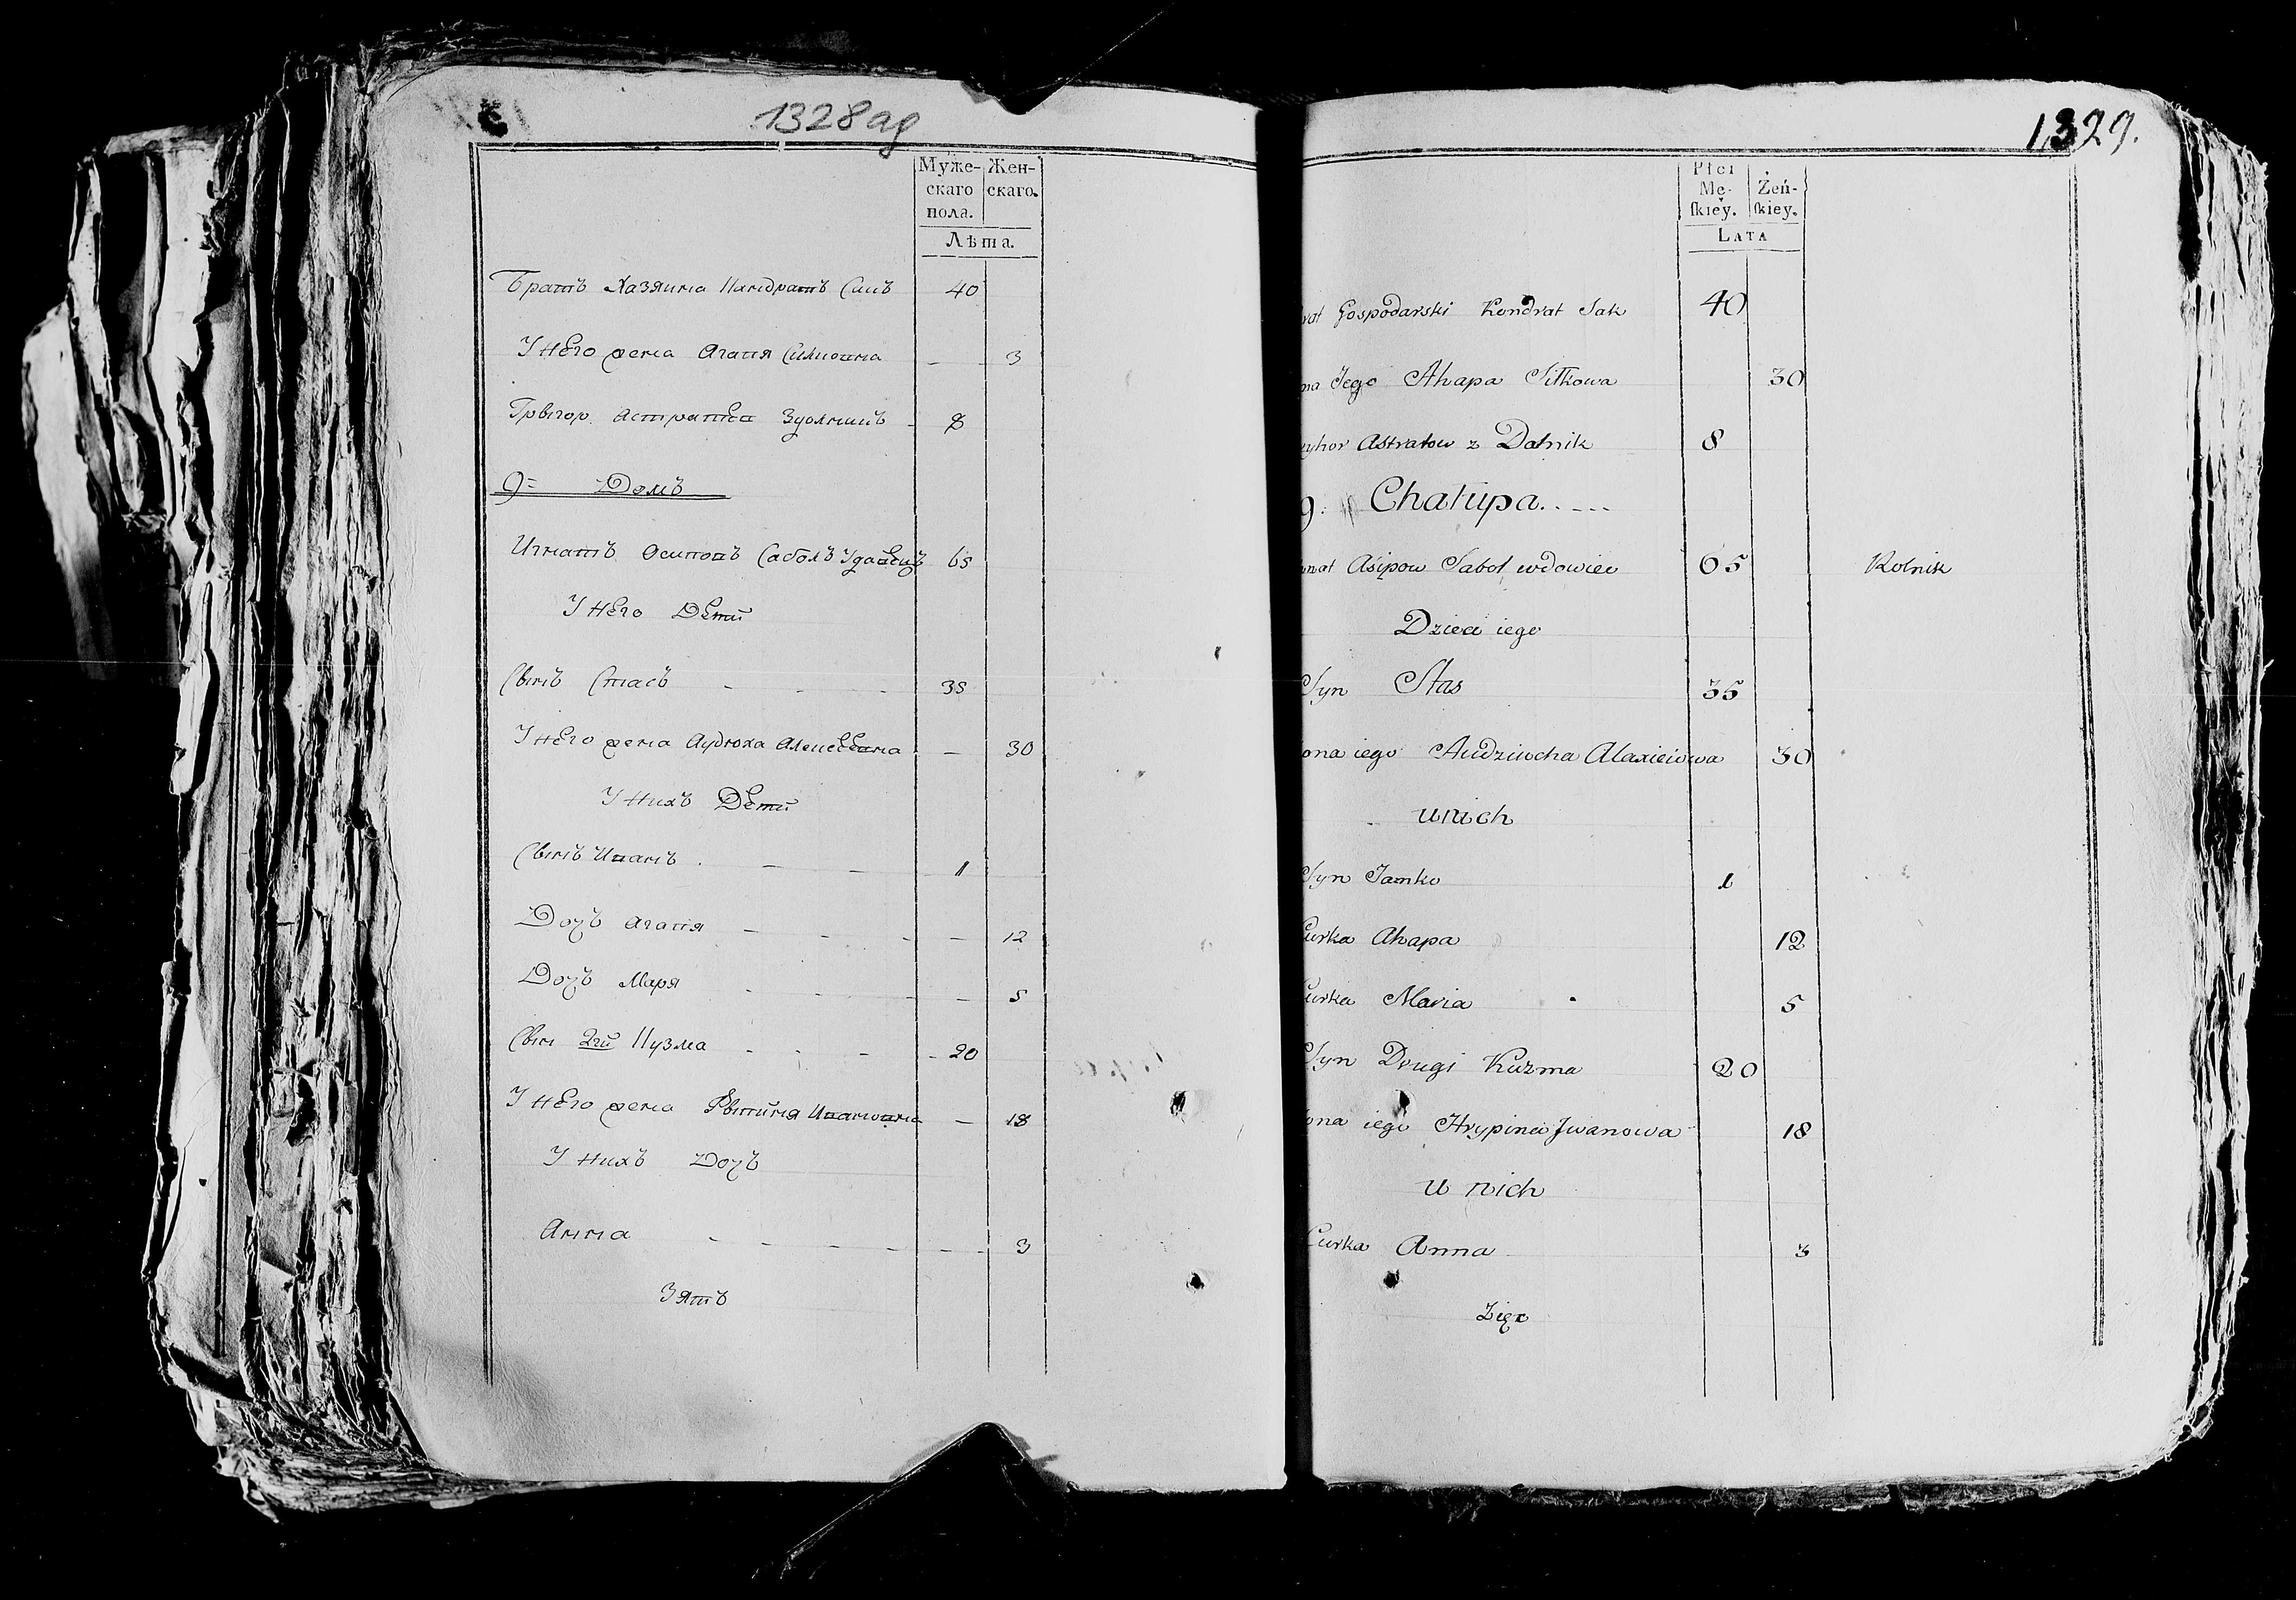 1328ag
Муже-
скаго
пола.
Жен-
скаго.
Лѣта.
Братъ Хазяина Кандратъ Сакъ 40
У него жена Агапя 3
Грыгор 8
9= Домъ
Игнатъ Осиповъ Саболъ Удавецъ 65
У него Дети
Сынъ Стасъ 35
У него жена Аудюха Алексеева 30
У нихъ Дети
Сынъ Иванъ 1
Дочъ Агапя 12
Дочъ Маря 5
Сын 2гй Кузма 20
У него жена Ивановна 18
У нихъ Дочъ
Анна 3
Зять
1329.
Płci
Mę-
skiey.
Żeń-
skiey.
LATA
rat Gospodarski Kondrat Sak 40
na Jego Ahapa Sitkowa 30
eyhor Astratow z Datnik 8
9. Chałupa.....
hnat Asipow Saboł wdowiec 65 Rolnik
Dzieci iego
Syn Stas 35
ona iego Audziucha Alaxieiowa 30
u nich
Syn Jamko 1
Curka Ahapa 12
Curka Maria 5
Syn Drugi Kuzma 20
ona iego Hrypina Jwanowa 18
u nich
Curka Anna 3
Zięc